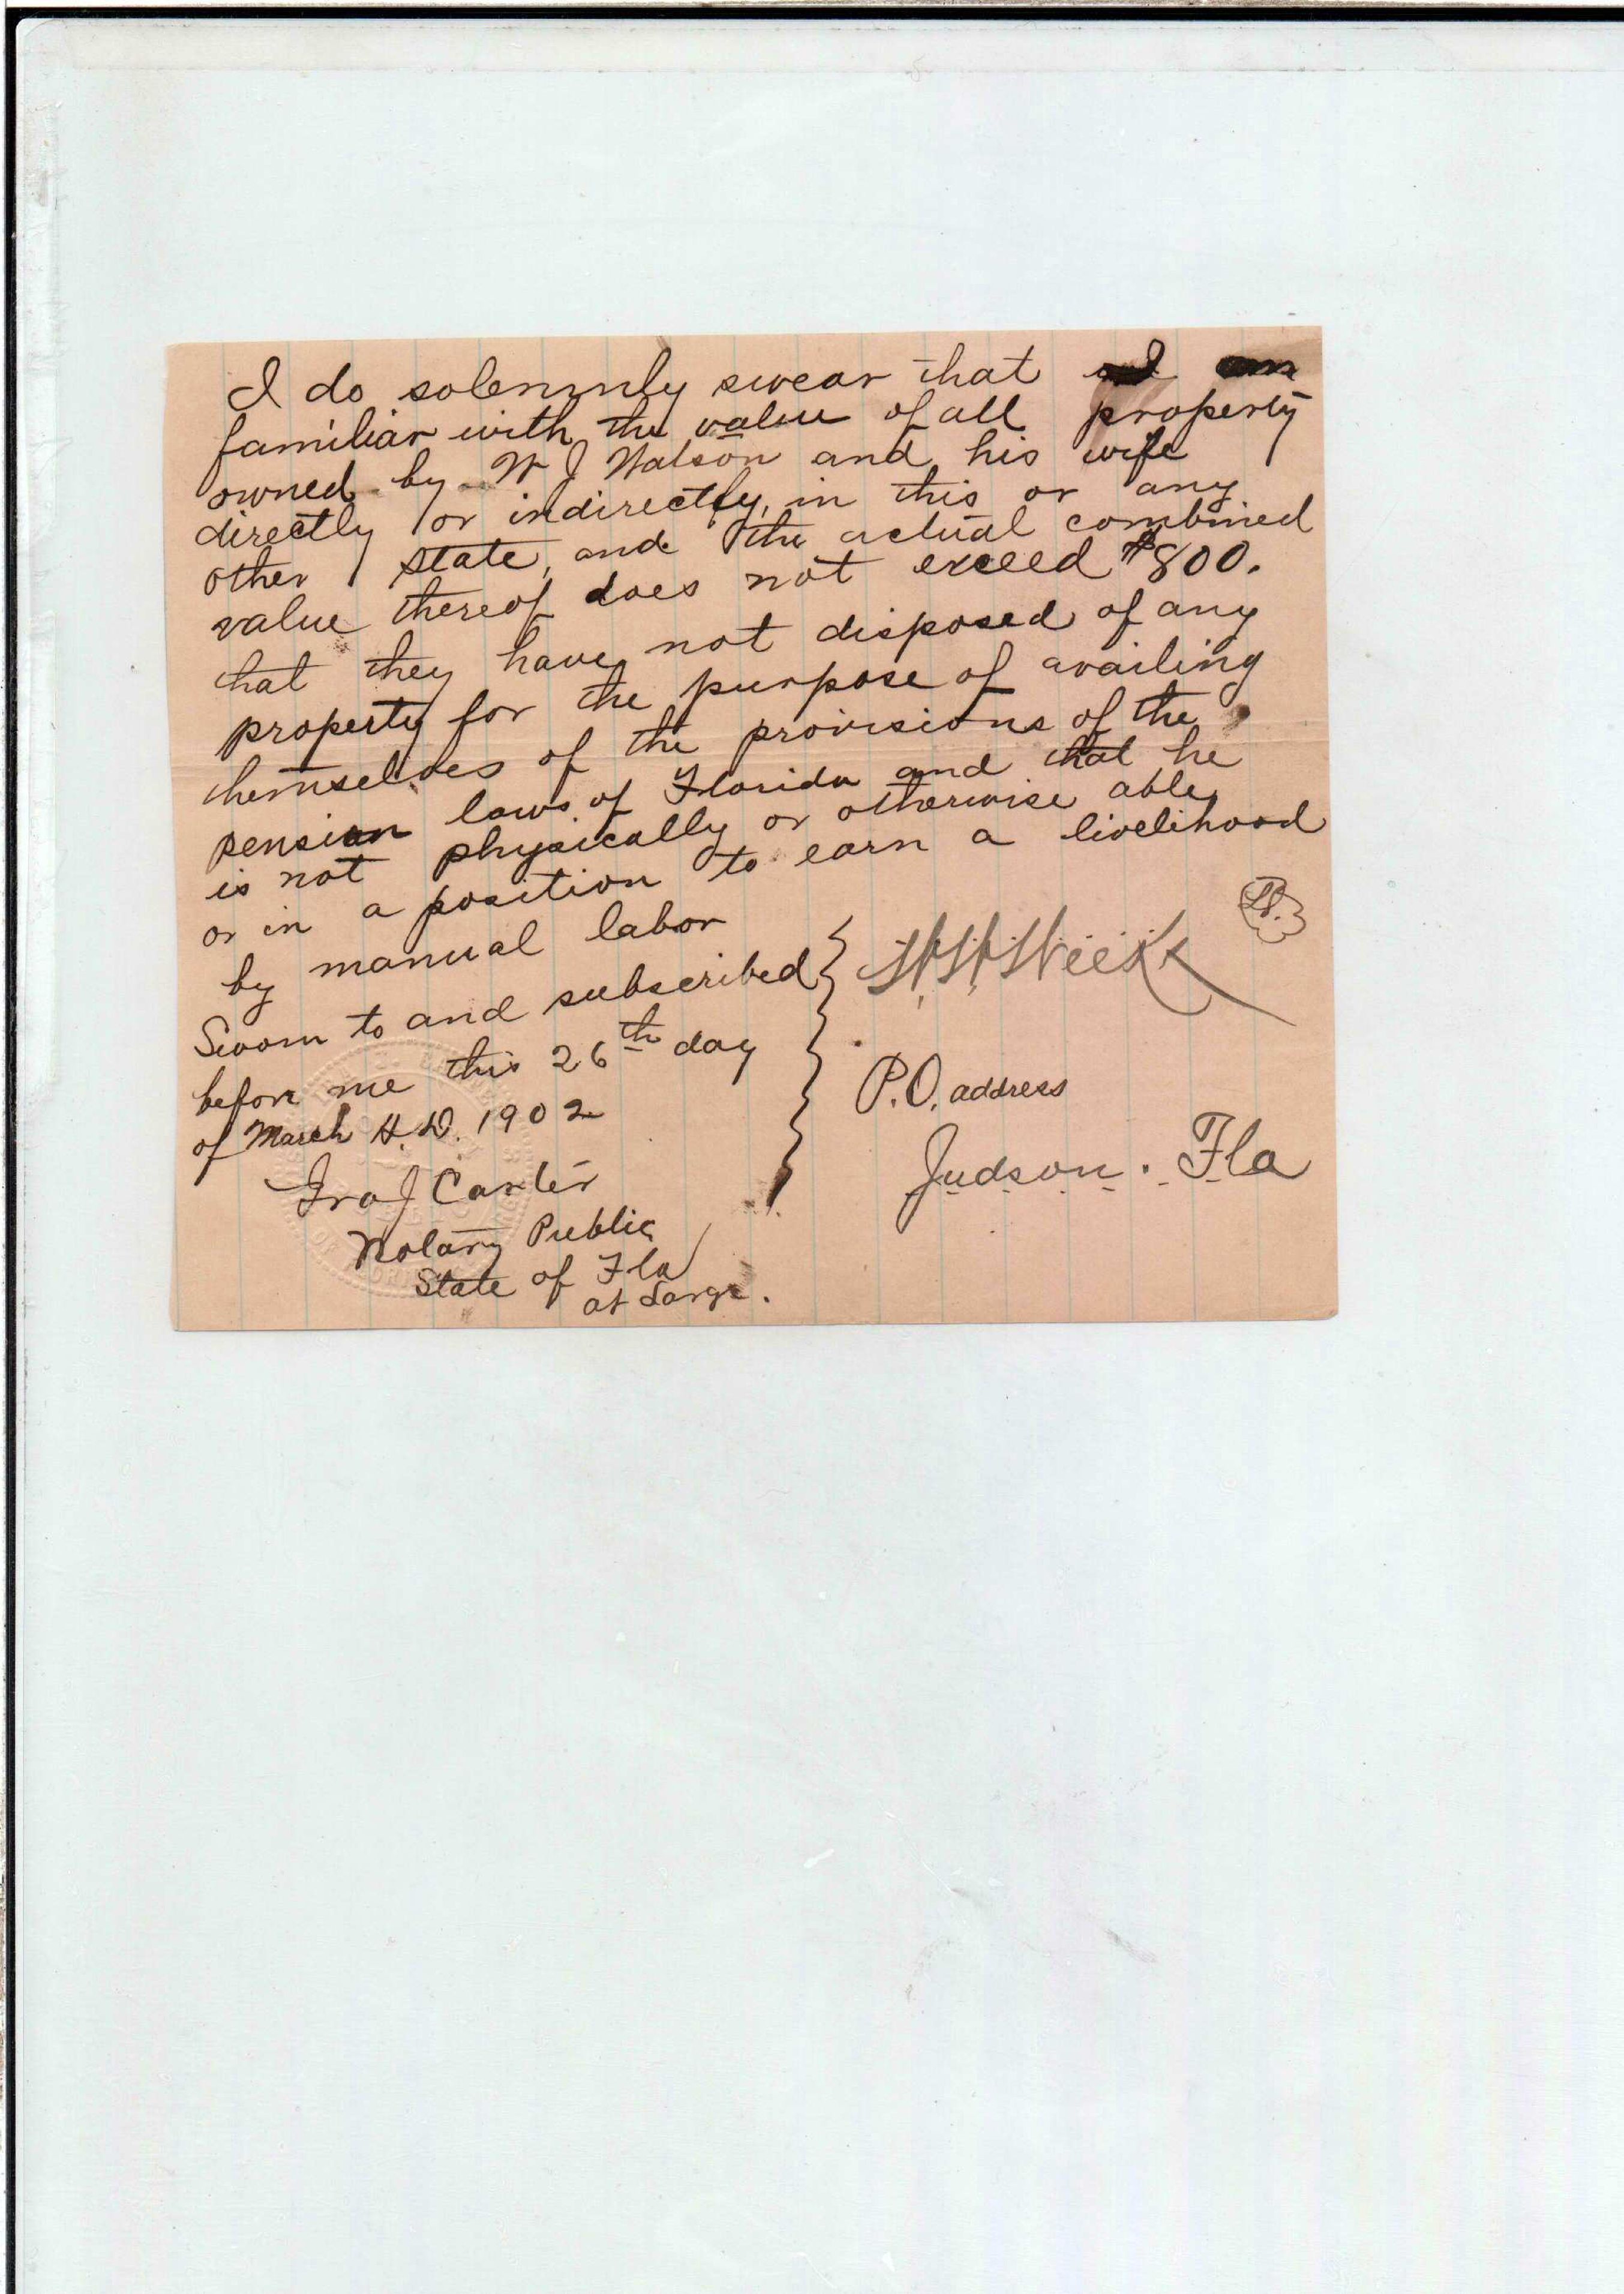 I do solemnly swear that I am
familiar with the value of all property
owned by W J Watson and his wife
directly or indirectly, in this or any
other state, and the actual combined
value thereof does not exceed $800.
that they have not disposed of any
property for the purpose of availing
themselves of the provisions of the
pension laws of Florida and that he
is not physically or otherwise able
or in a position to earn a livelihood
by manual labor
Sworn to and subscribed
before me this 26th day
of March A.D. 1902
Ira J Carter
Notary Public
State of Fla
at Large.
P.O. address
Judson. Fla